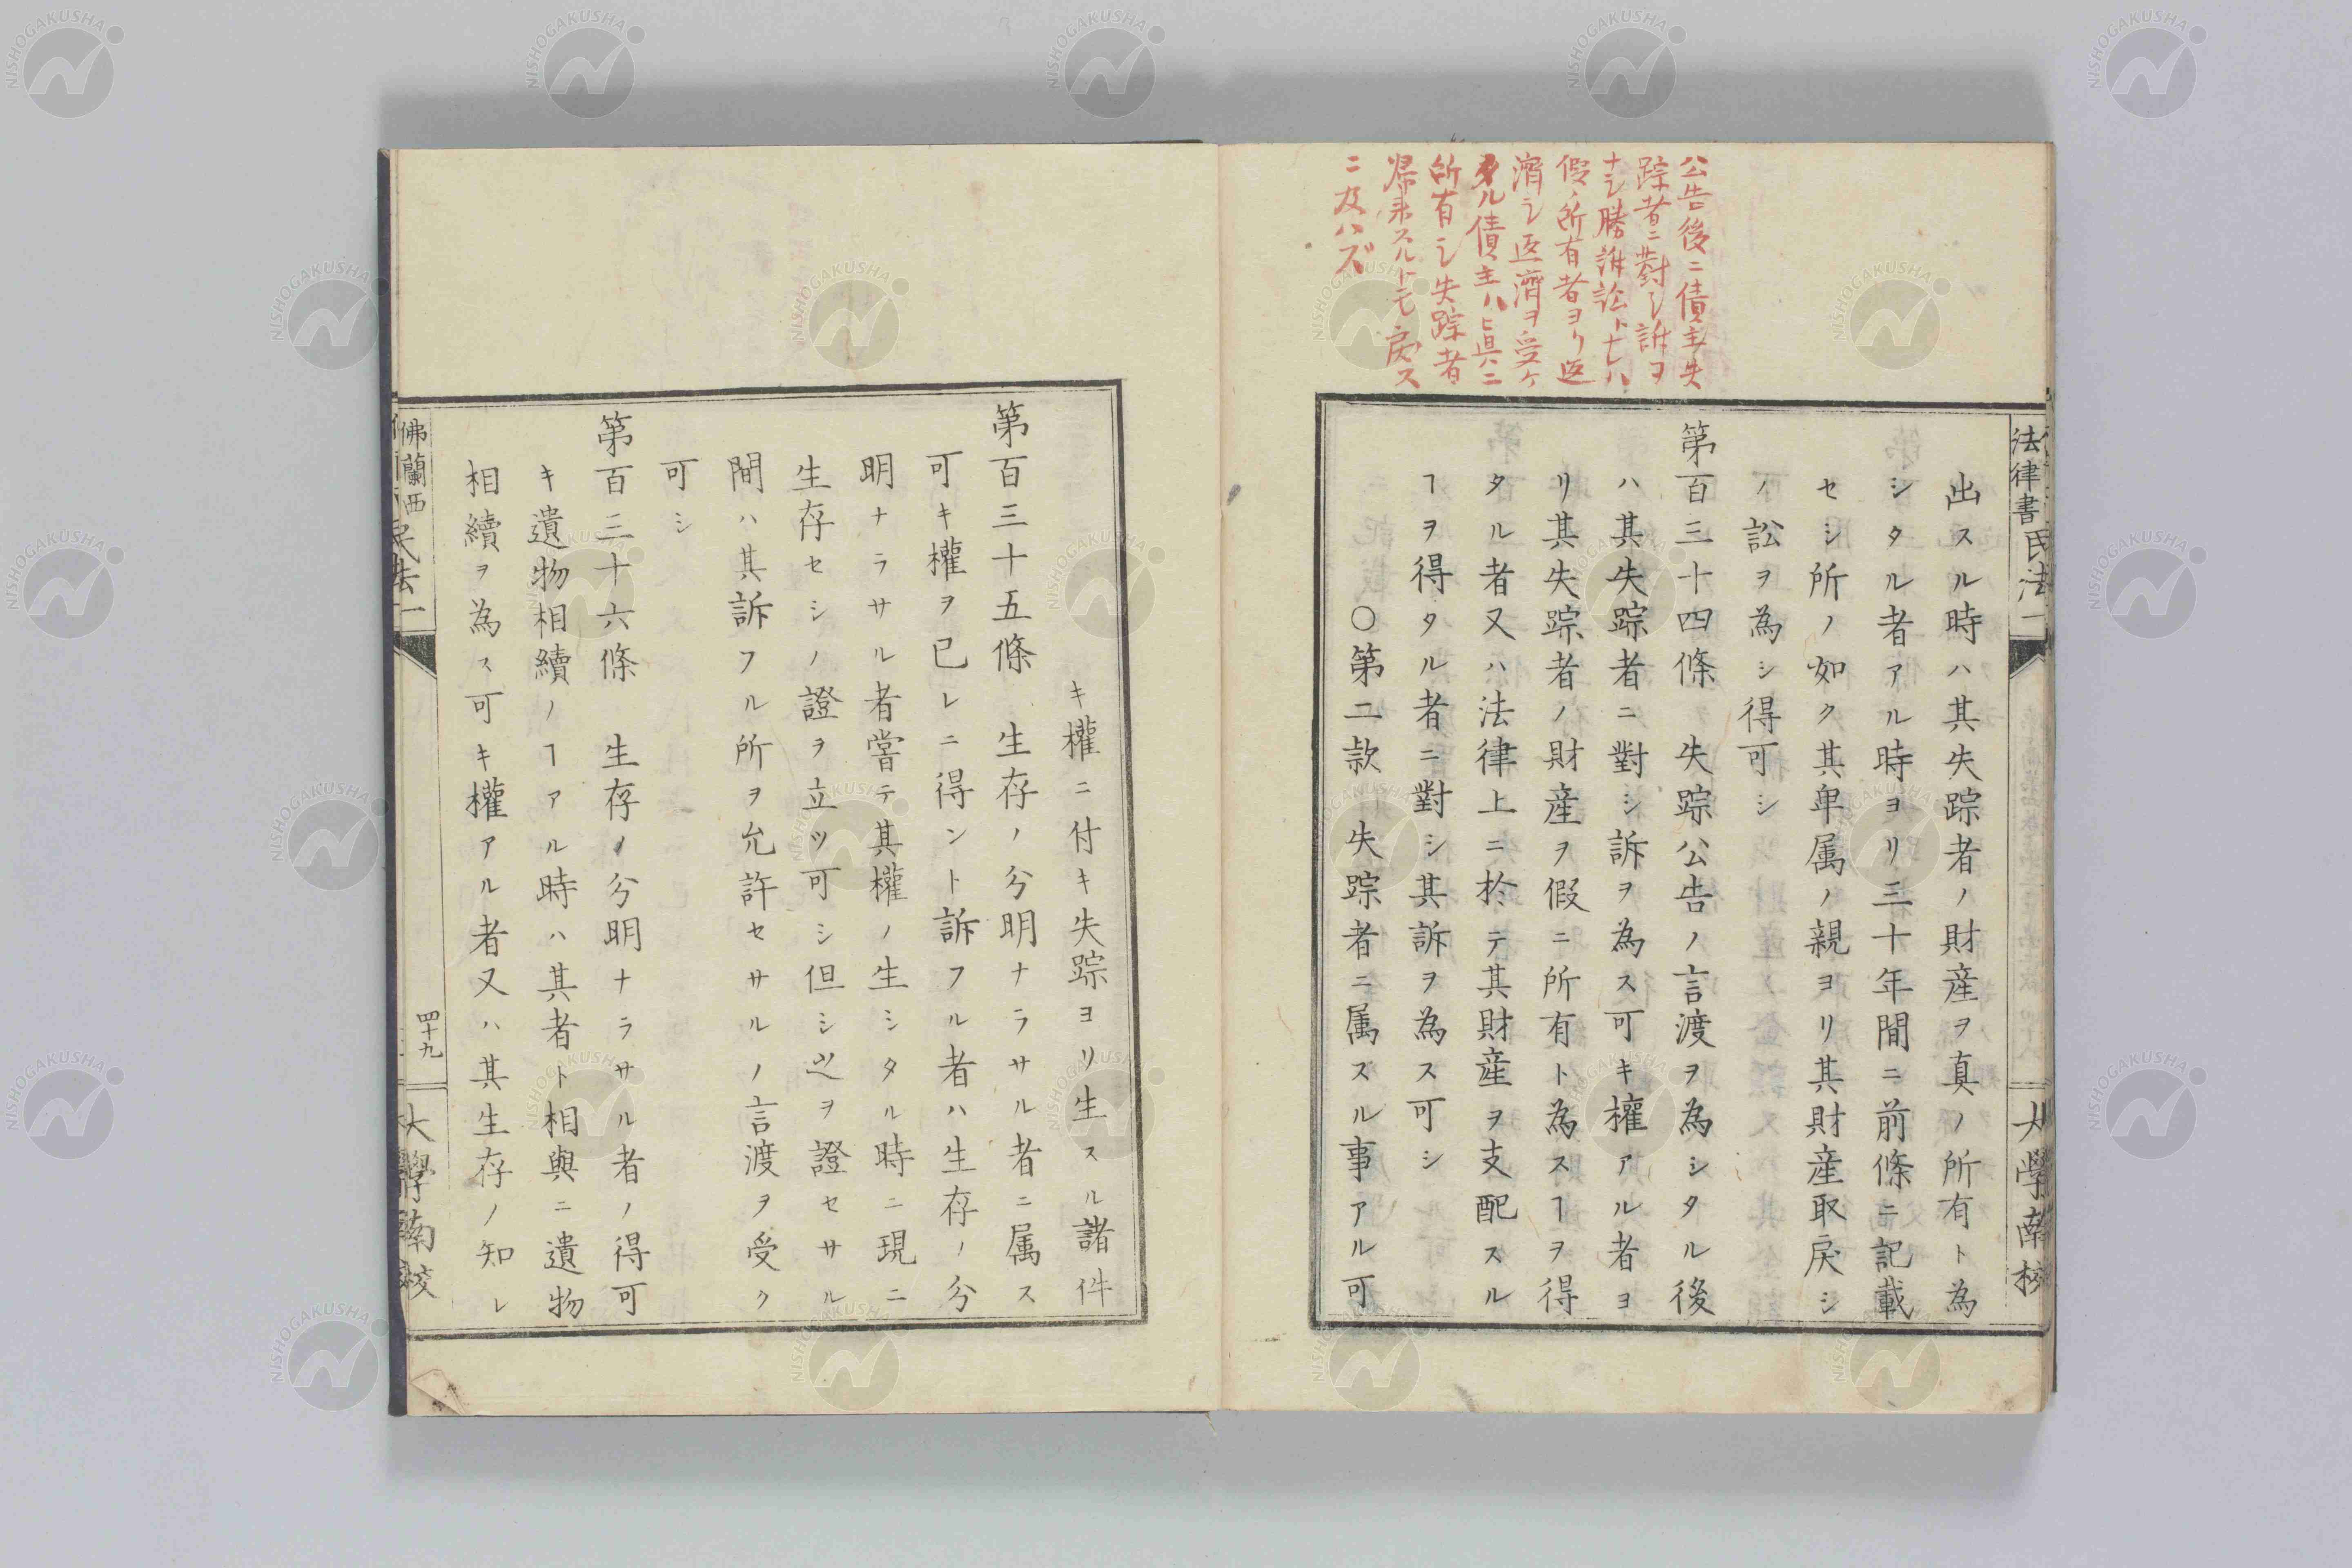 公告後ニ債主失
踪者ニ對シ訴ヲ
ナシ勝訴訟トナレハ
假ノ所有者ヨリ返
濟シ返濟ヲ受ケ
タル債主ハ眞ニ
所有シ失踪者
帰来スルトモ戻ス
ニ及ハズ
法律書民法一
大學南校
出スル時ハ其失踪者ノ財産ヲ真ノ所有ト為
シタル者アル時ヨリ三十年間ニ前條ニ記載
セシ所ノ如ク其卑属ノ親ヨリ其財産取戻シ
ノ訟ヲ為シ得可シ
第百三十四條 失踪公告ノ言渡ヲ為シタル後
ハ其失踪者ニ對シ訴ヲ為ス可キ權アル者ヨ
リ其失踪者ノ財産ヲ假ニ所有ト為スヿヲ得
タル者又ハ法律上ニ於テ其財産ヲ支配スル
ヿヲ得タル者ニ對シ其訴ヲ為ス可シ
〇第二款 失踪者ニ属スル事アル可
キ權ニ付キ失踪ヨリ生スル諸件
第百三十五條 生存ノ分明ナラサル者ニ属ス
可キ權ヲ已レニ得ント訴フル者ハ生存ノ分
明ナラサル者嘗テ其權ノ生シタル時ニ現ニ
生存セシノ證ヲ立ツ可シ但シ之ヲ證セサル
間ハ其訴フル所ヲ允許セサルノ言渡ヲ受ク
可シ
第百三十六條 生存ノ分明ナラサル者ノ得可
キ遺物相續ノヿアル時ハ其者ト相與ニ遺物
相續ヲ為ス可キ權アル者又ハ其生存ノ知レ
佛蘭西
民法一
四十九
大學南校